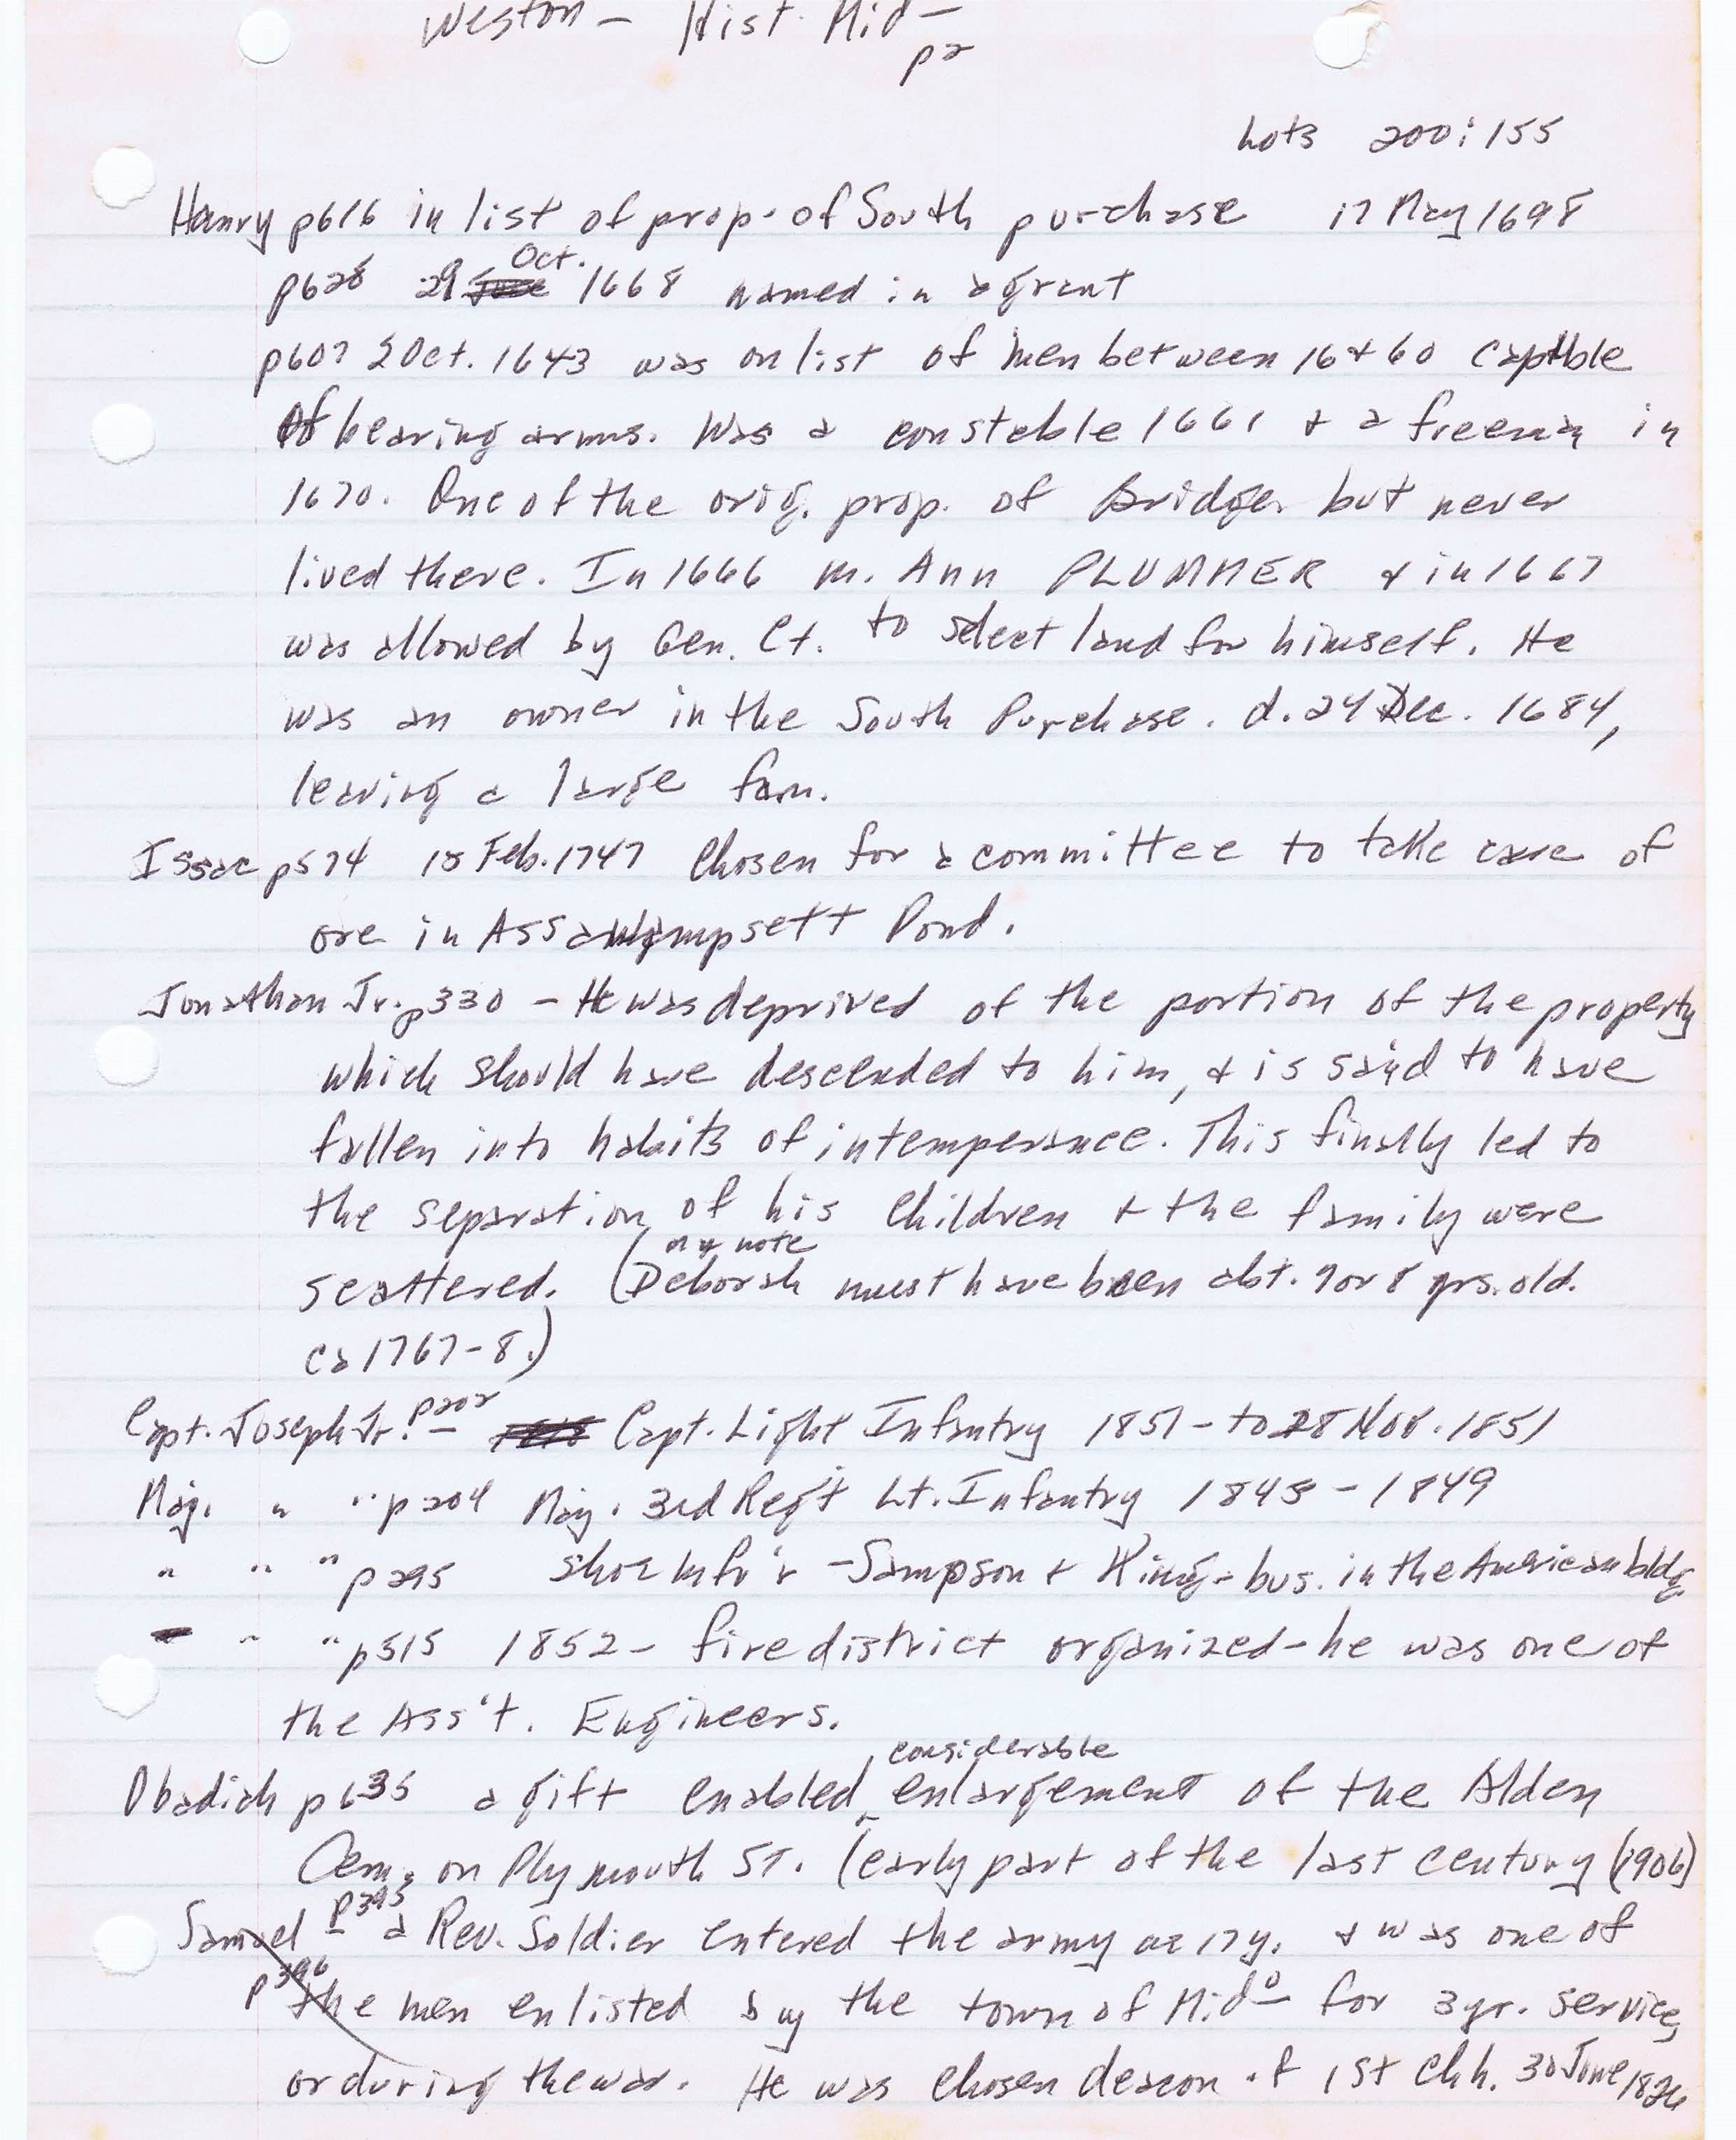 Weston - Hist. Mid-
p2
Lots 200: 155
Henry p616 in list of prop. of South purchase 17 May 1698
p628 29 Oct. 1668 named in a grant
p607 2 Oct. 1643 was on list of men between 16 + 60 capable
of bearing arms. Was a constable 1661 + a freeman in
1670. One of the orig. prop. of Bridger but never
lived there. In 1666 m. Ann PLUMMER + in 1667
was allowed by Gen. Ct. to select land for himself. He
was an owner in the South Purchase. d. 24 Dec. 1684,
leaving a large fam.
Issac p574 18 Feb. 1747 Chosen for a committee to take care of
ore in Assawampsett Pond.
Jonathan Jr. p330 - He was deprived of the portion of the property
which should have descended to him, + is said to have
fallen into habits of intemperance. This finally led to
the separation of his children + the family were
my note
scattered. (Deborah must have been abt. 7 or 8 yrs. old.
ca 1767-8.)
Capt. Joseph Jr. p202 - Capt. Light Infantry 1851 - to 28 Nov. 1851
Maj. " " p204 Maj. 3rd Reg't Lt. Infantry 1845 - 1849
" " " p295 shoe mfr'r - Sampson + King - bus. in the American bldg
" " p515 1852 - fire district organized - he was one of
the Ass't. Engineers.
Obadiah p635 a gift enabled considerable enlargement of the Alden
Cem. on Plymouth St. (early part of the last century (1906)
Samuel p395 a Rev. Soldier entered the army ae 17y. + was one of
p396 the men enlisted by the town of Mido for 3 yr. service,
or during the war. He was chosen deacon of 1st chh. 30 June 1826